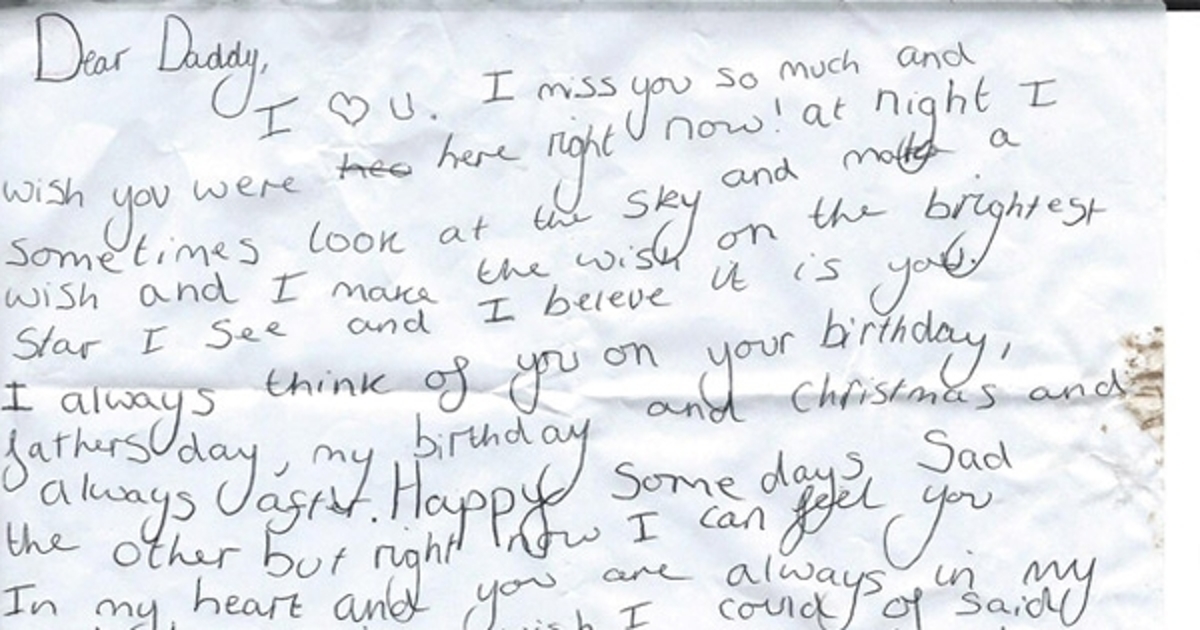 Dear Daddy,
I ♡ U. I miss you so much and
wish you were here right now! at night I
sometimes look at the sky and make a
wish and I make the wish on the brightest
Star I see and I beleve it is you.
I always think of you on your birthday,
fathers day, my birthday and Christmas and
always after. Happy Some days Sad
the other but right now I can feel you
In my heart and you are always in my
wish I could of said